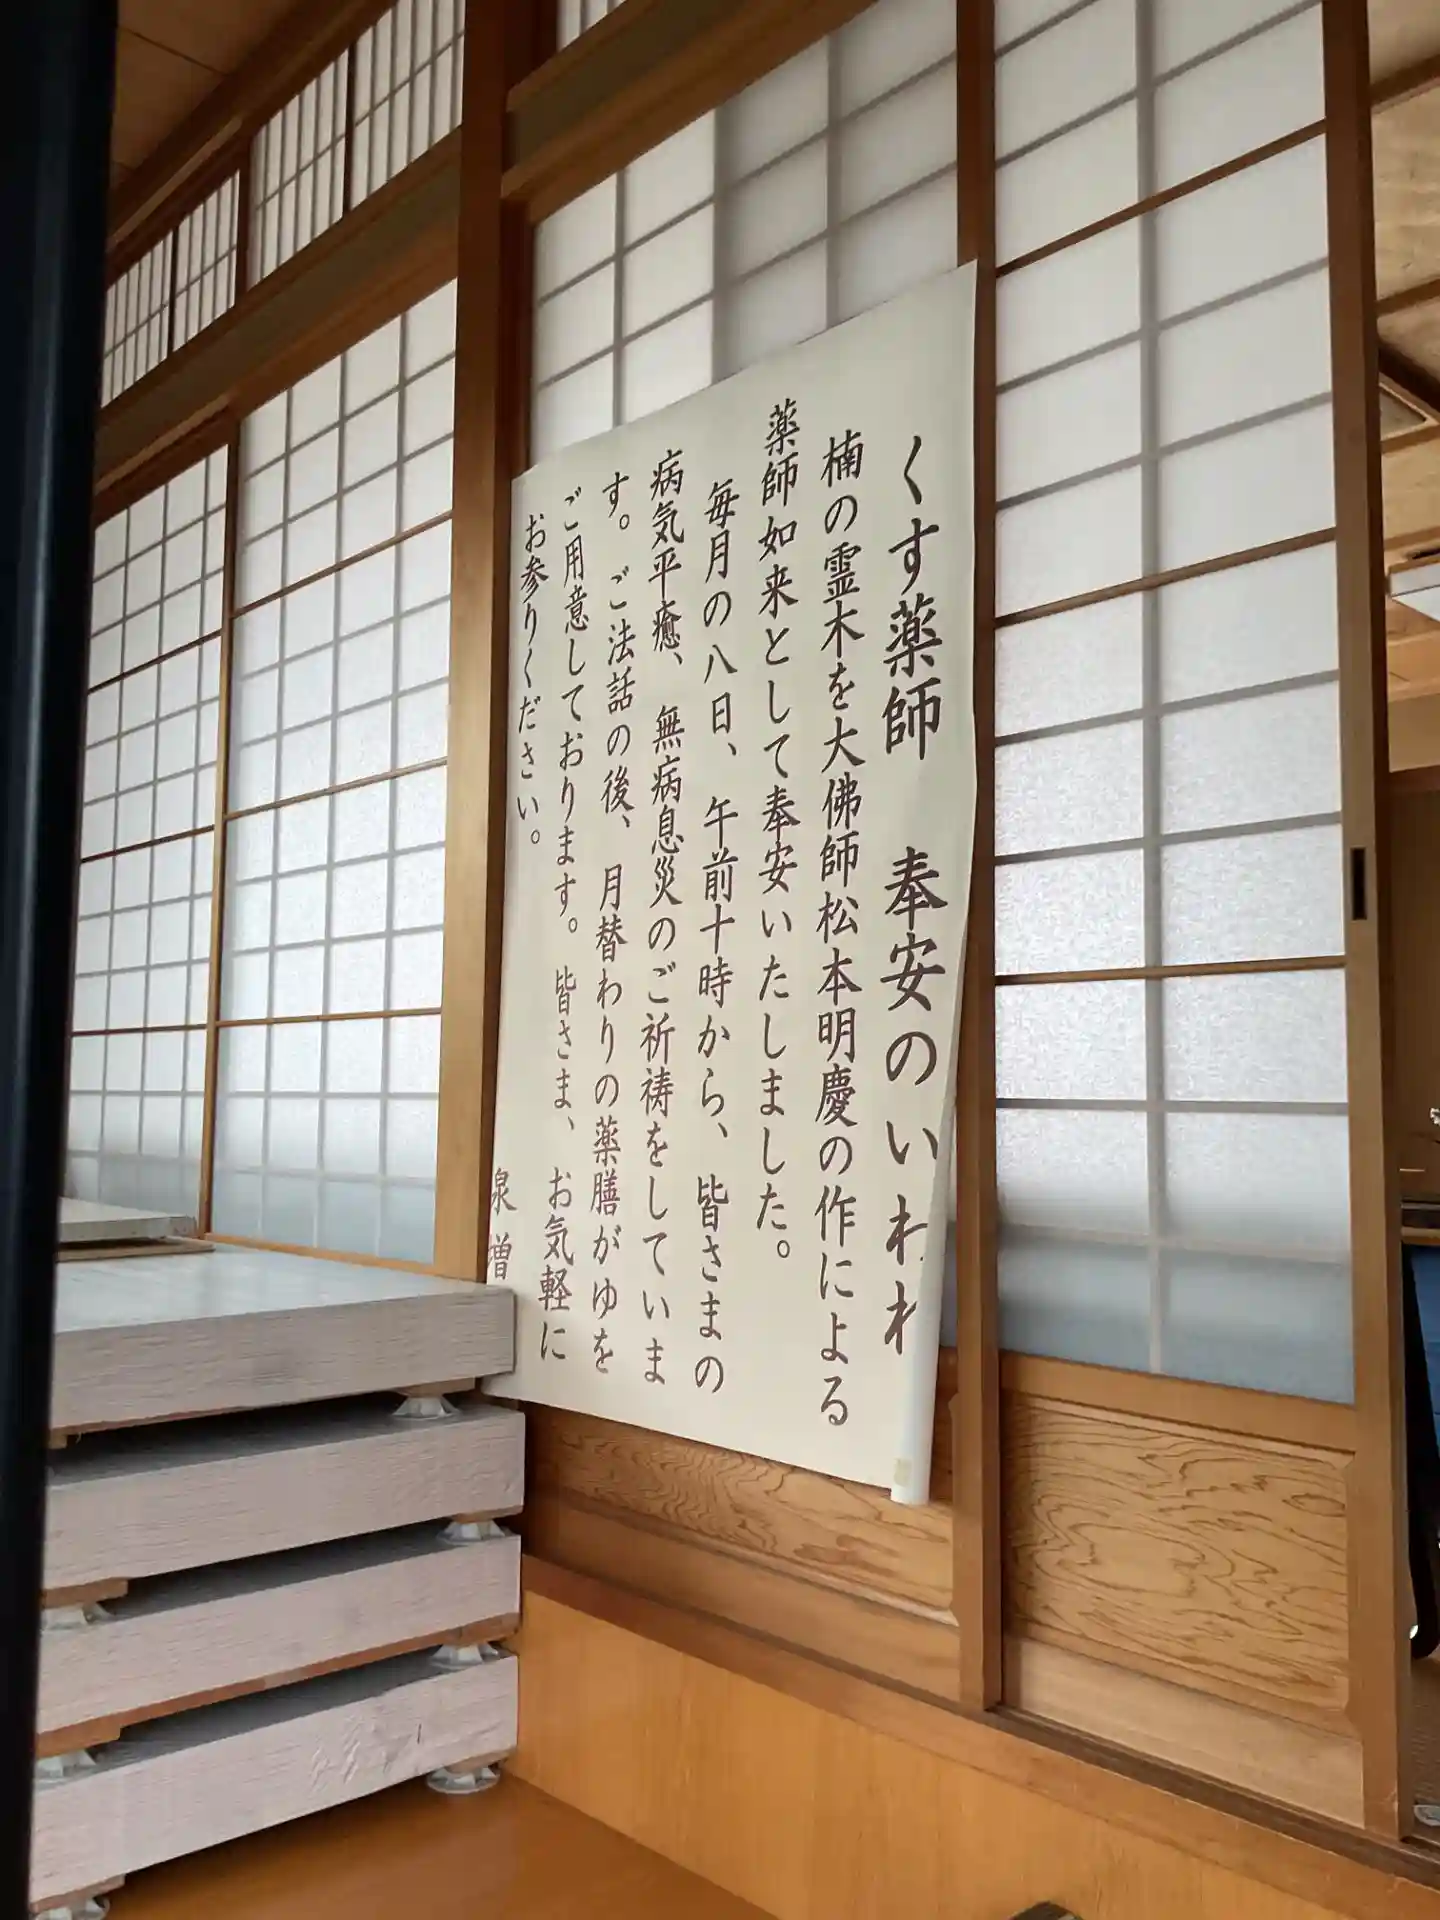 くす薬師　奉安のいわれ
楠の霊木を大佛師松本明慶の作による
薬師如来として奉安いたしました。
毎月の八日、午前十時から、皆さまの
病気平癒、無病息災のご祈祷をしていま
す。ご法話の後、月替わりの薬膳がゆを
ご用意しております。皆さま、お気軽に
お参りください。
泉増